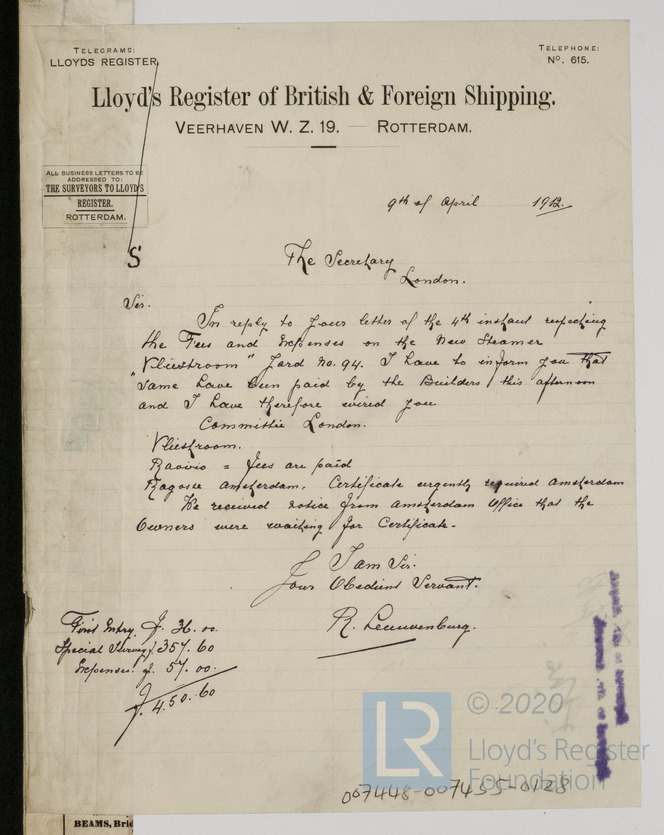 TELEGRAMS:
LLOYDS REGISTER
TELEPHONE:
No. 615.
Lloyd's Register of British & Foreign Shipping.
VEERHAVEN W. Z. 19. — ROTTERDAM.
ALL BUSINESS LETTERS TO BE
ADDRESSED TO:
THE SURVEYORS TO LLOYD'S
REGISTER.
ROTTERDAM.
9th of April 1912.
S
The Secretary
London.
Sir.
In reply to your letter of the 4th instant respecting
the Fees and Expenses on the New Steamer
„Vliestroom" Yard No. 94. I have to inform you that
same have been paid by the Builders this afternoon
and I have therefore wired you
Committie London.
Vliestroom.
Raovio = fees are paid
Ragosce Amsterdam. Certificate urgently required Amsterdam
We received notice from Amsterdam Office that the
Owners were waiting for Certificate.
I am Sir.
Your Obedient Servant.
R. Leeuwenburg.
First Entry f. 36. 00
Special Survey f 357. 60
Expenses f. 57. 00
f. 450. 60
LR
© 2020
Lloyd's Register
Foundation
007448-007455-0128
BEAMS,